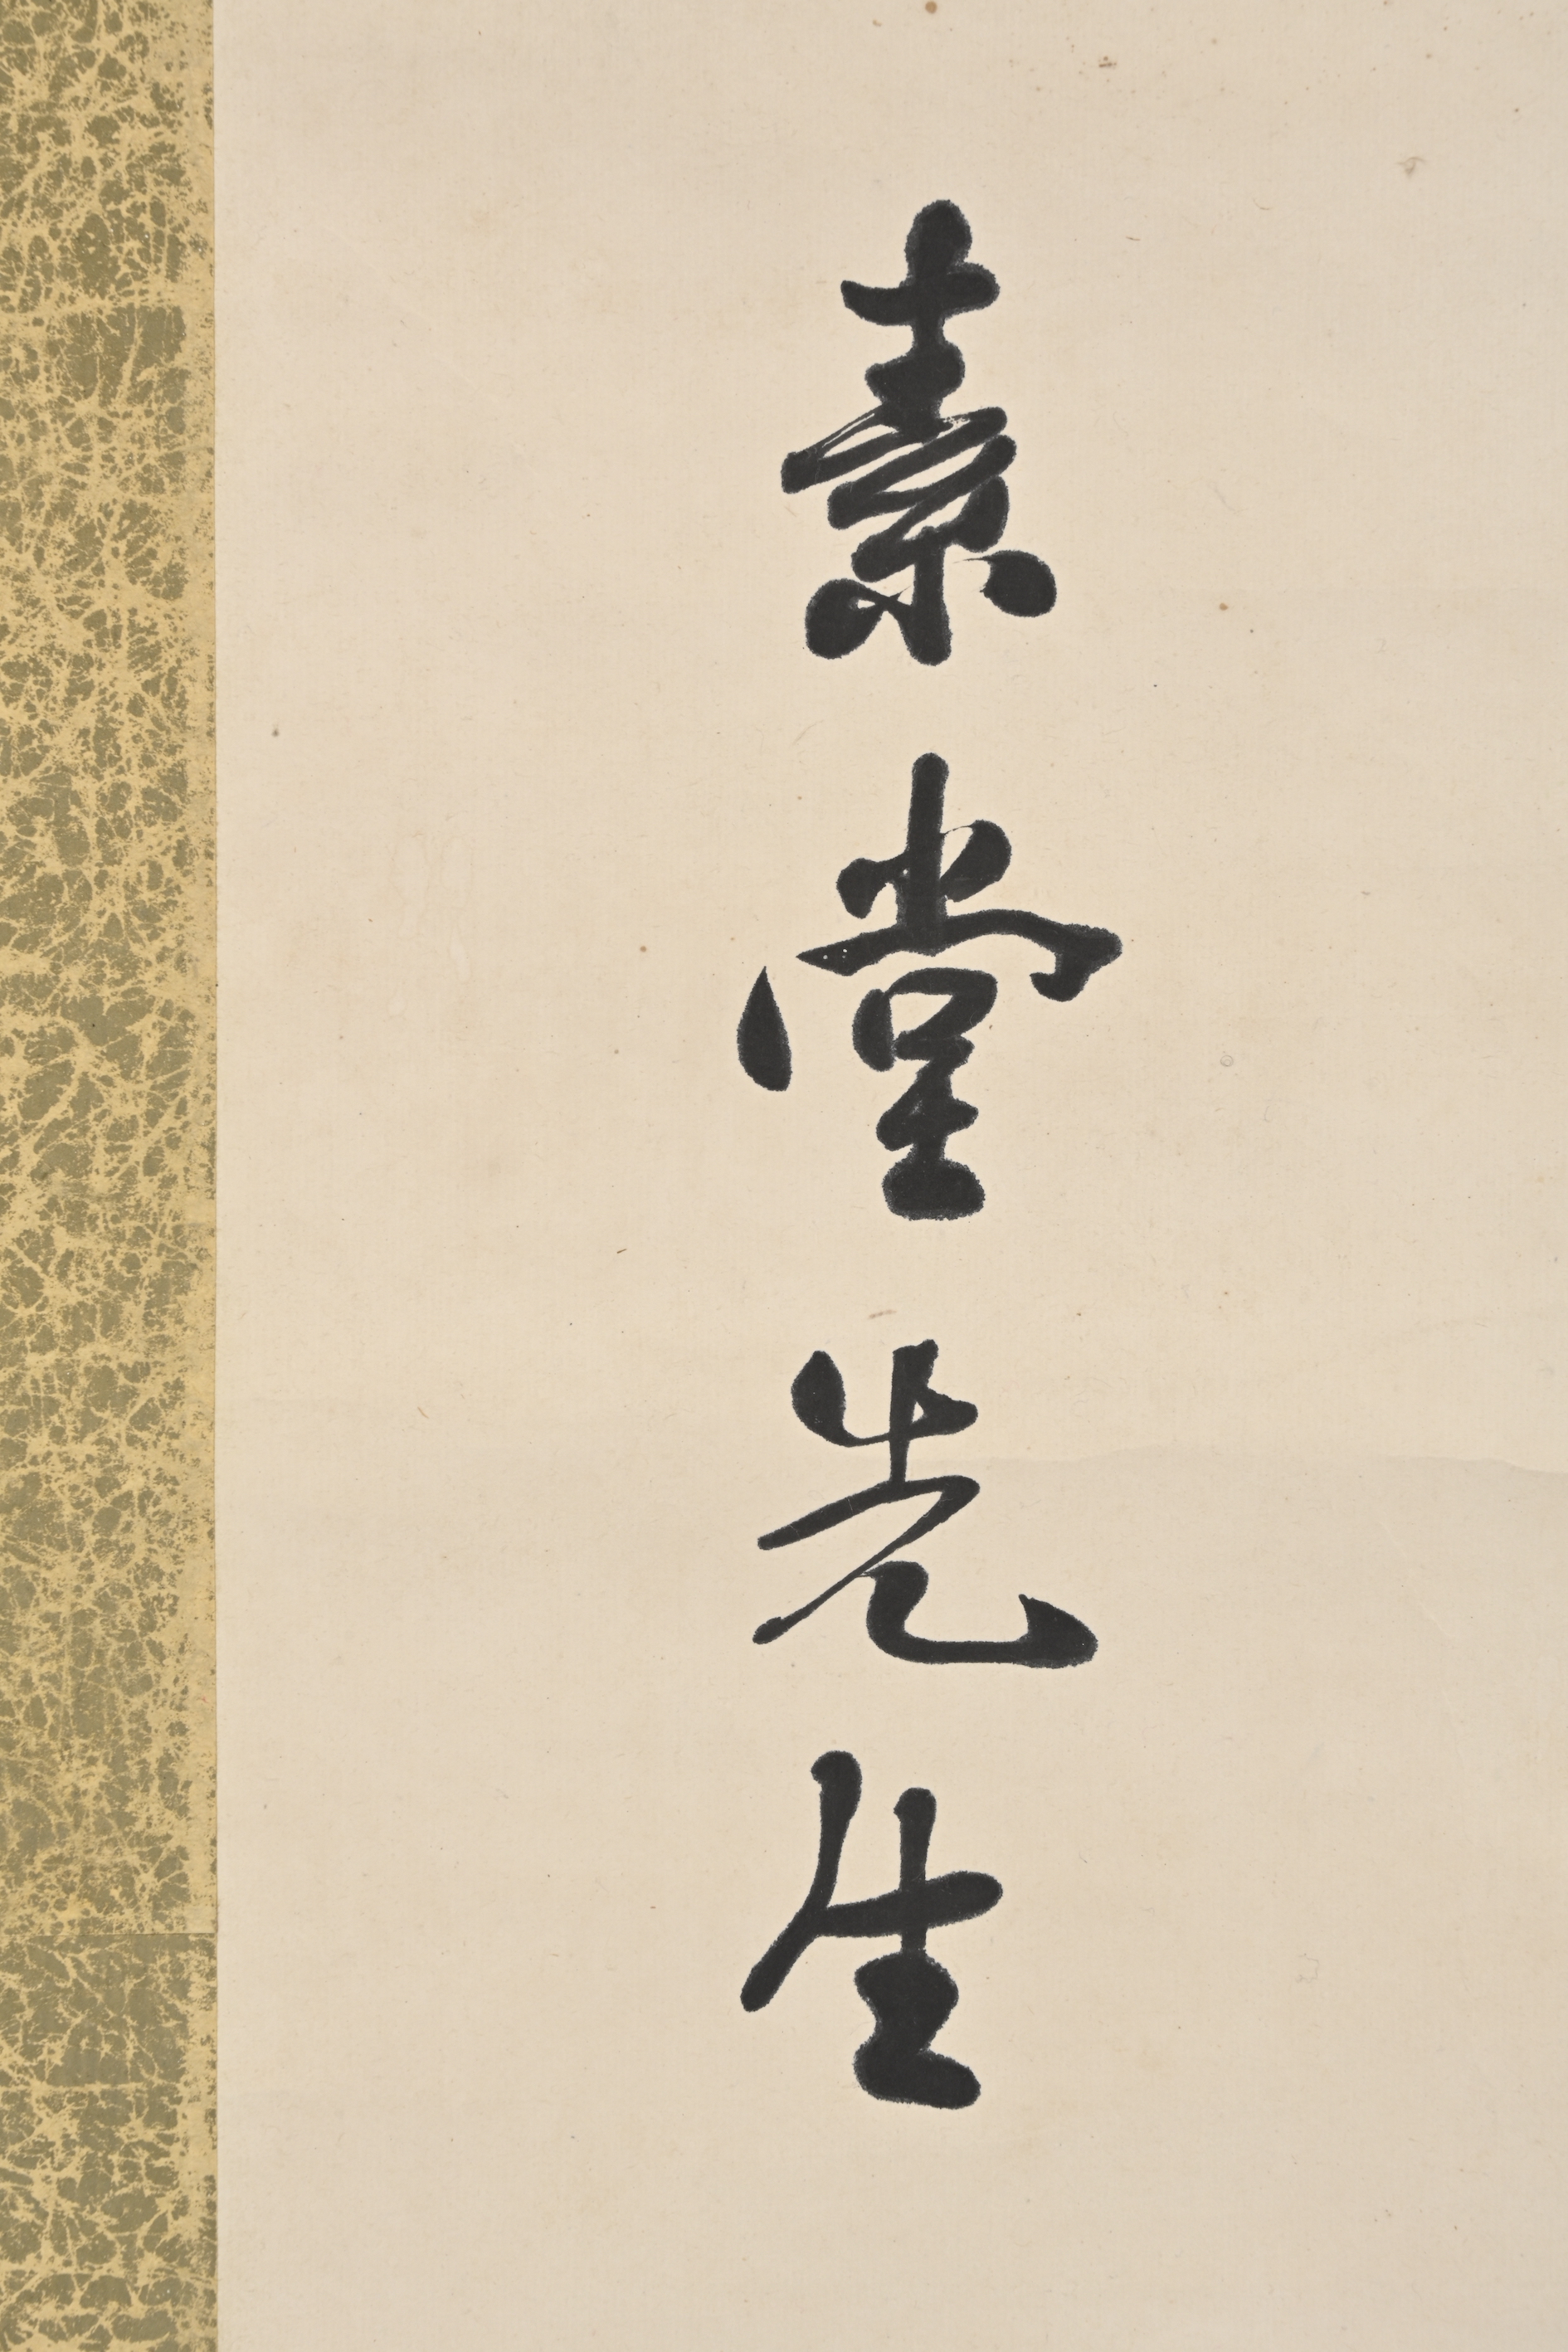 素堂先生